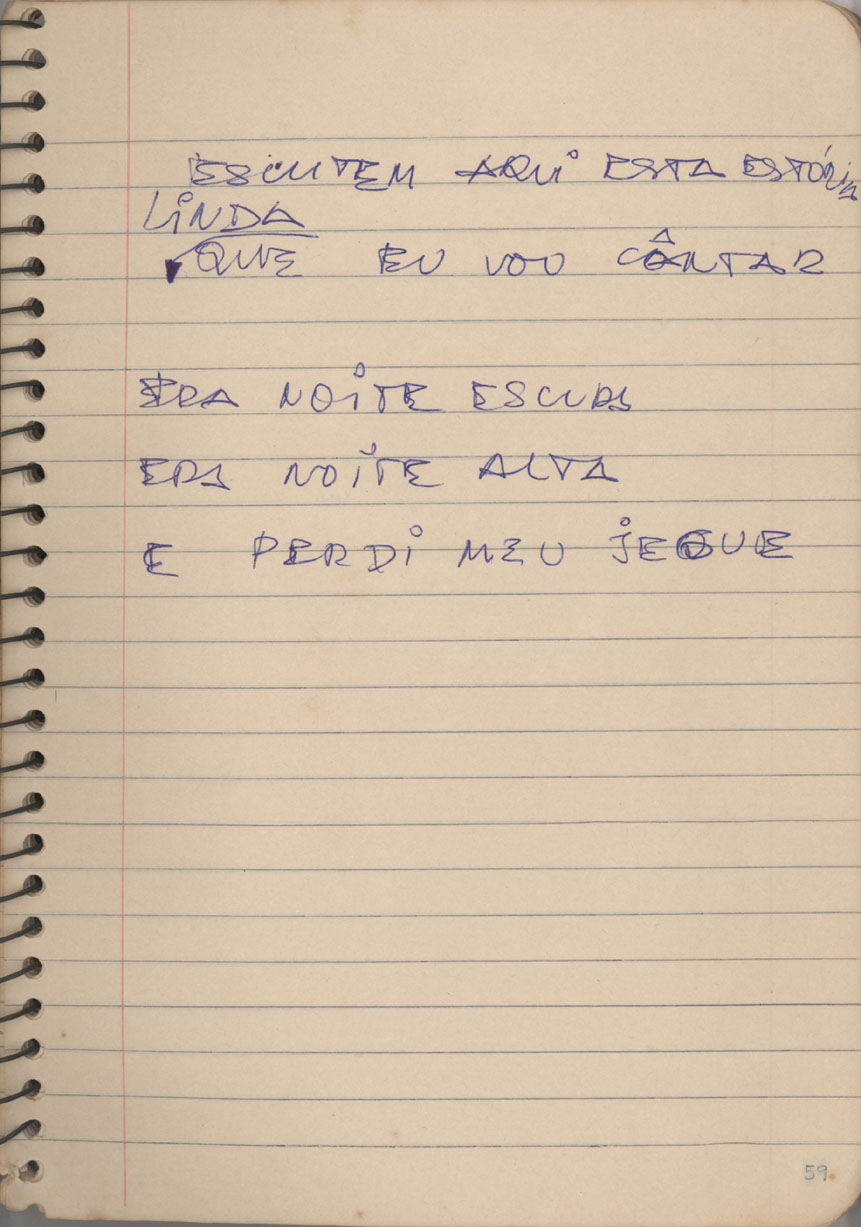 ESCUTEM AQUI ESTA ESTÓRIA
LINDA
QUE EU VOU CÂNTAR
ERA NOITE ESCURA
ERA NOITE ALTA
E PERDI MEU JEGUE
59